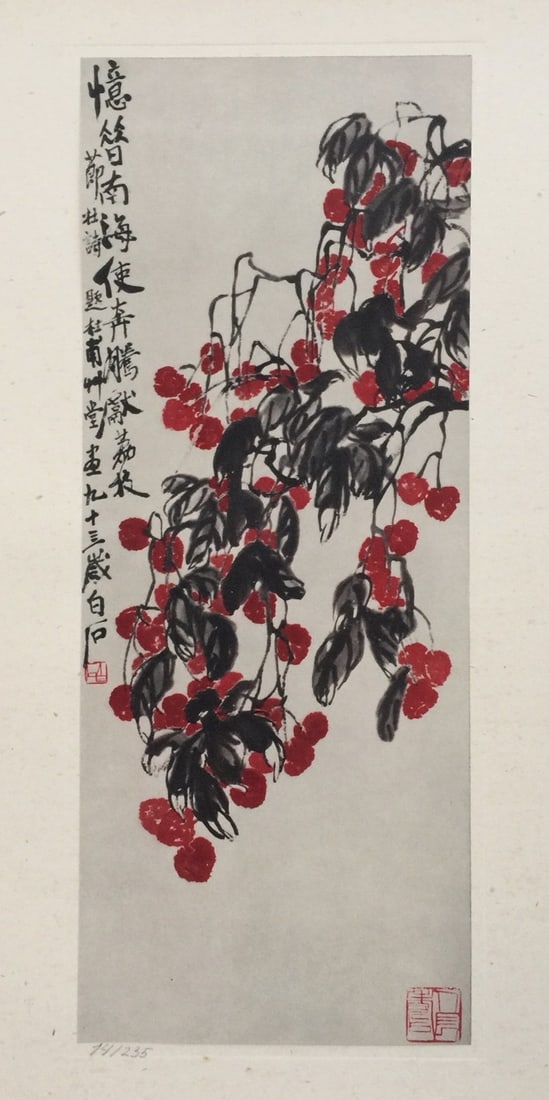 憶昔南海使奔騰獻荔枝
節杜詩題杜甫艸堂畫九十三歲白石